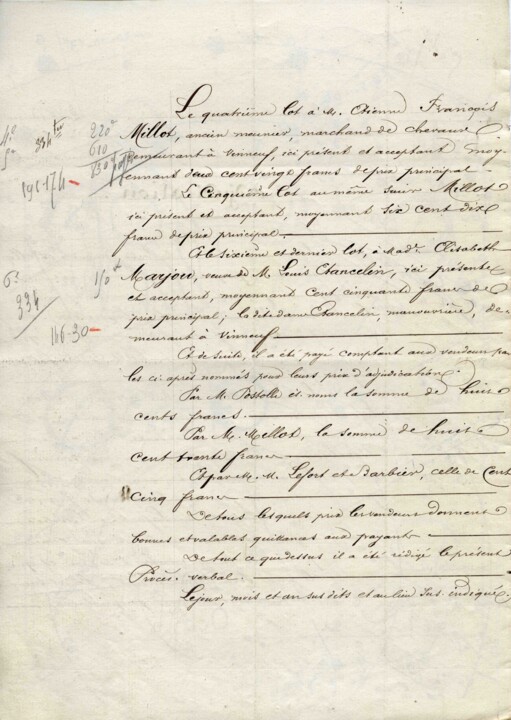 Le quatrième lot à M. Etienne François
Millot, ancien meunier, marchand de chevaux
demeurant à Vinneuf, ici présent et acceptant moy-
ennant deux cent vingt francs de prix principal.
Le Cinquième Lot au même Sieur Millot
ici présent et acceptant, moyennant six cent dix
francs de prix principal.
Et le sixième et dernier lot, à Made. Elisabeth
Marjou, veuve de M. Louis Etancelin, ici présente
et acceptant, moyennant Cent cinquante francs de
prix principal; la dite dame Etancelin, manouvrière, de-
meurant à Vinneuf.
Et de suite, il a été payé comptant aux vendeurs par
les ci après nommés pour leurs prix d'adjudication.
Par M. ès noms la somme de huit
cents francs.
Par M. Millot, la somme de huit
cent trente francs
Et par M. M. Lefort et Barbier, celle de Cent
Cinq francs
De tous lesquels prix les vendeurs donnent
bonnes et valables quittances aux payants.
De tout ce que dessus il a été rédigé le présent
Procès-verbal.
Le jour, mois et an sus dits et au lieu sus indiqué.
220
610
174
150
334
116-30